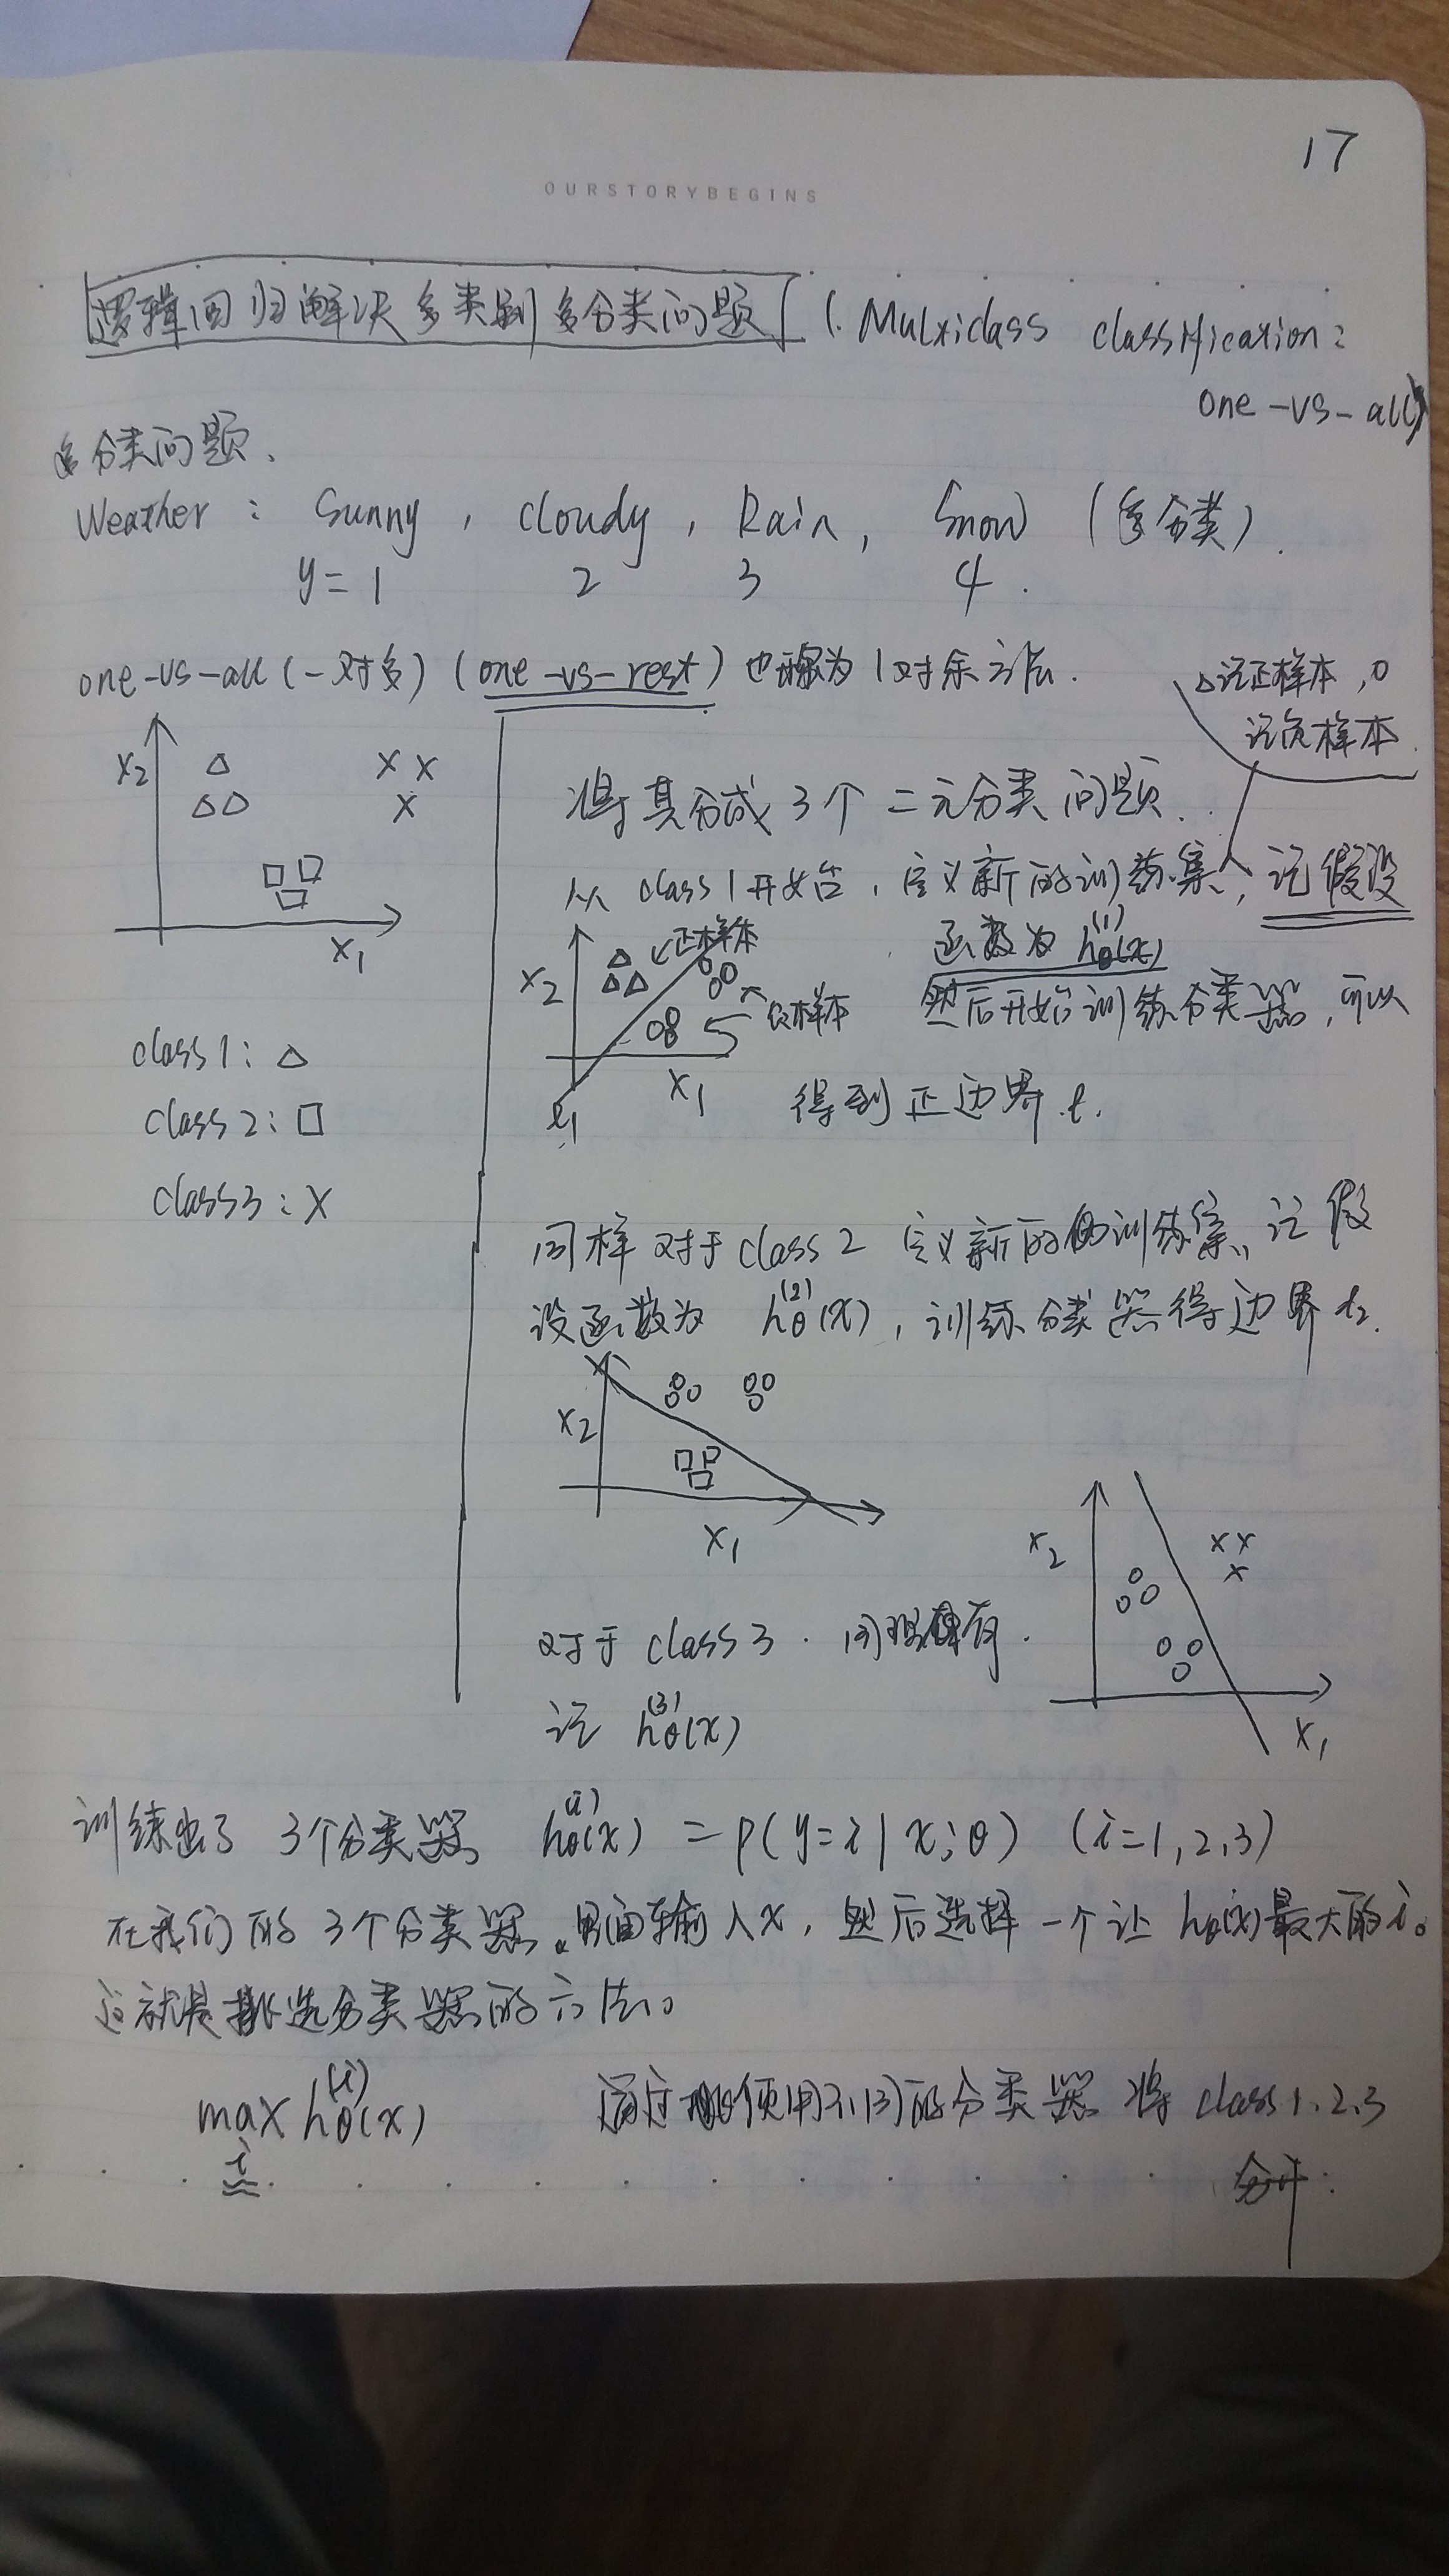 17
OURSTORYBEGINS
逻辑回归解决多类别多分类问题 (Multiclass classification:
one-vs-all)
多分类问题、
Weather: Sunny, cloudy, Rain, Snow (多分类).
y=1 2 3 4.
one-vs-all(一对多) (one-vs-rest) 也称为1对余方法.
△记正样本,O
记负样本.
x2
x1
class1: △
class2: □
class3: X
将其分成3个二元分类问题.
从class1开始,定义新的训练集,记假设
函数为 hθ(1)(x)
然后开始训练分类器,可以
得到正边界 l.
正样本
负样本
x2
x1
l1
同样对于class2 定义新的训练集,记假
设函数为 hθ(2)(x),训练分类器得边界 l2.
x2
x1
对于class3.同理有.
记 hθ(3)(x)
x2
x1
训练出了3个分类器 hθ(i)(x) = P(y=i|x;θ) (i=1,2,3)
在我们的3个分类器。里面输入x,然后选择一个让 hθ(i)(x)最大的i。
这就是挑选分类器的方法。
max hθ(i)(x)
i
通过使用不同的分类器 将class1.2.3
分开.